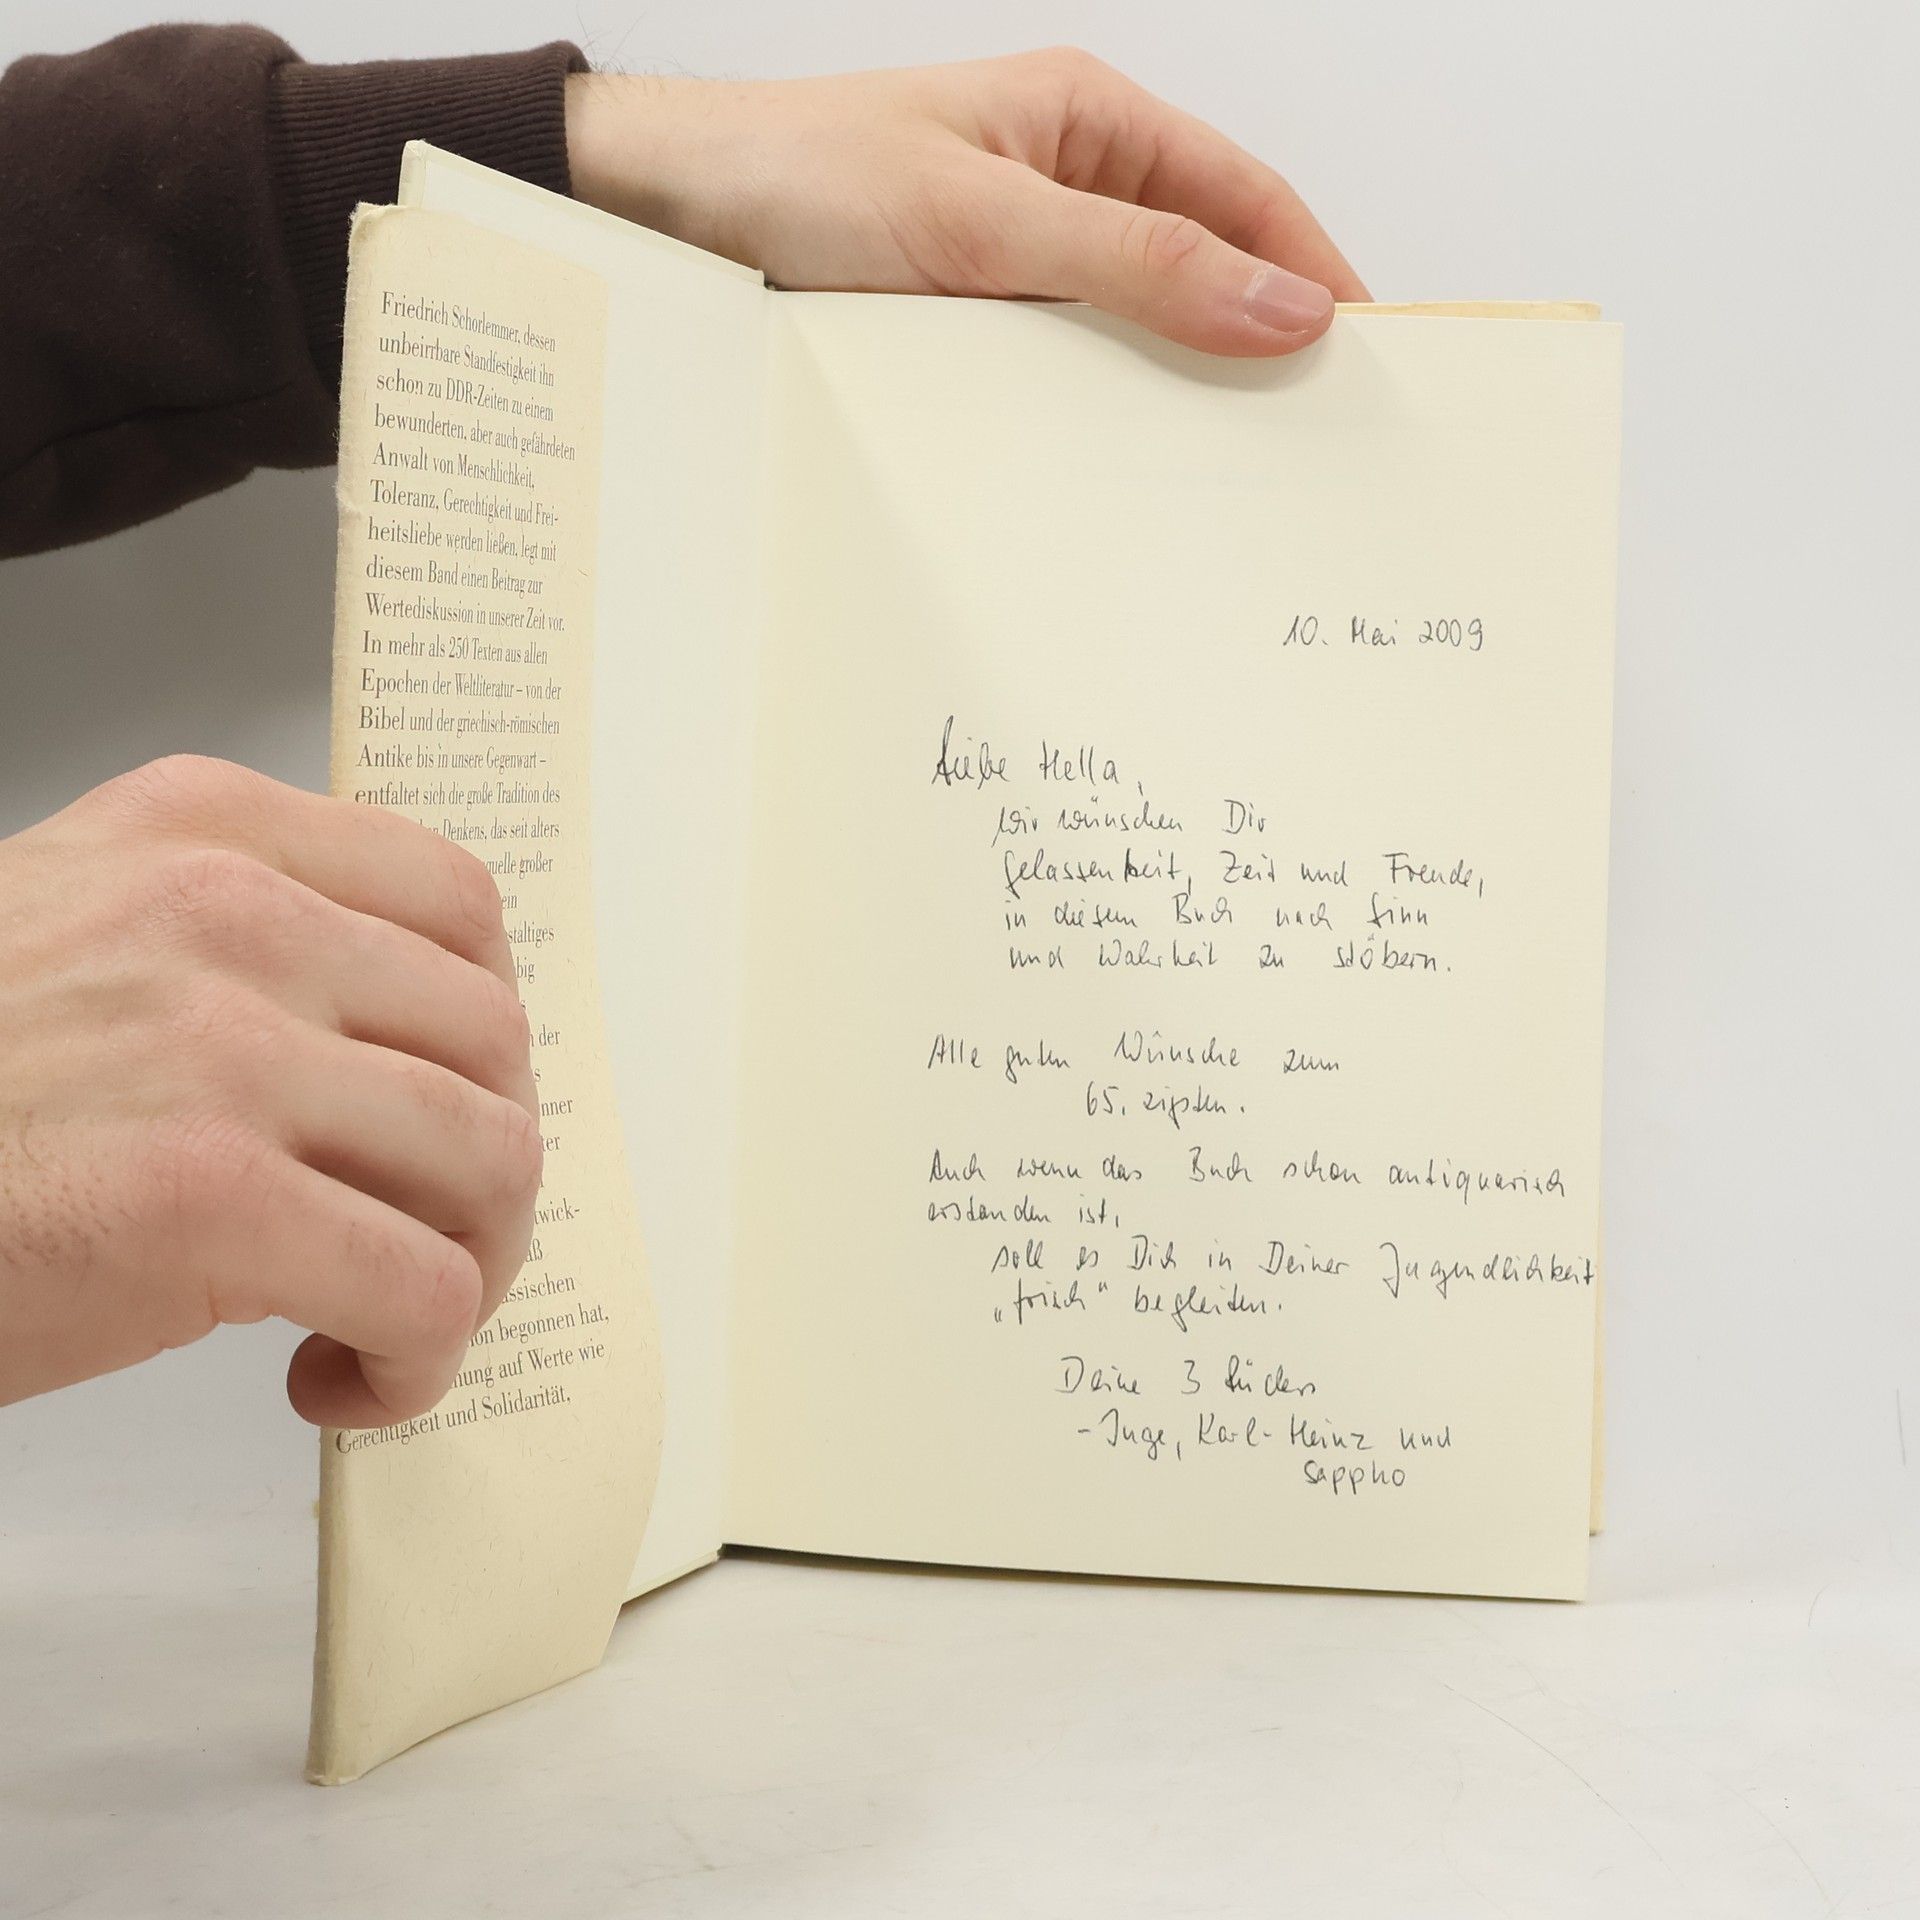 Friedrich Schorlemmer, dessen
unbeirrbare Standfestigkeit ihn
schon zu DDR-Zeiten zu einem
bewunderten, aber auch gefährdeten
Anwalt von Menschlichkeit,
Toleranz, Gerechtigkeit und Frei-
heitsliebe werden ließen, legt mit
diesem Band einen Beitrag zur
Wertediskussion in unserer Zeit vor.
In mehr als 250 Texten aus allen
Epochen der Weltliteratur – von der
Bibel und der griechisch-römischen
Antike bis in unsere Gegenwart –
entfaltet sich die große Tradition des
Denkens, das seit alters
quelle großer
ein
staltiges
big
der
nner
ter
twick-
aß
assischen
on begonnen hat,
nung auf Werte wie
Gerechtigkeit und Solidarität,
10. Mai 2009
Liebe Hella,
wir wünschen Dir
Gelassenheit, Zeit und Freude,
in diesem Buch nach Sinn
und Wahrheit zu stöbern.
Alle guten Wünsche zum
65. zigsten.
Auch wenn das Buch schon antiquarisch
erstanden ist,
soll es Dich in Deiner Jugendlichkeit
„frisch" begleiten.
Deine 3 Lüders
- Inge, Karl-Heinz und
Sappho